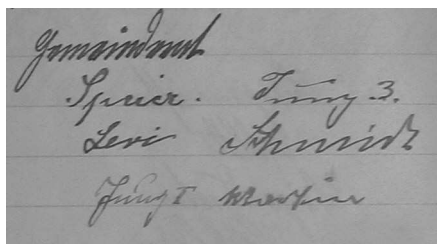 Gemeindeamt
Speier. Jung 3.
Levi Schmidt
Jung I Martin